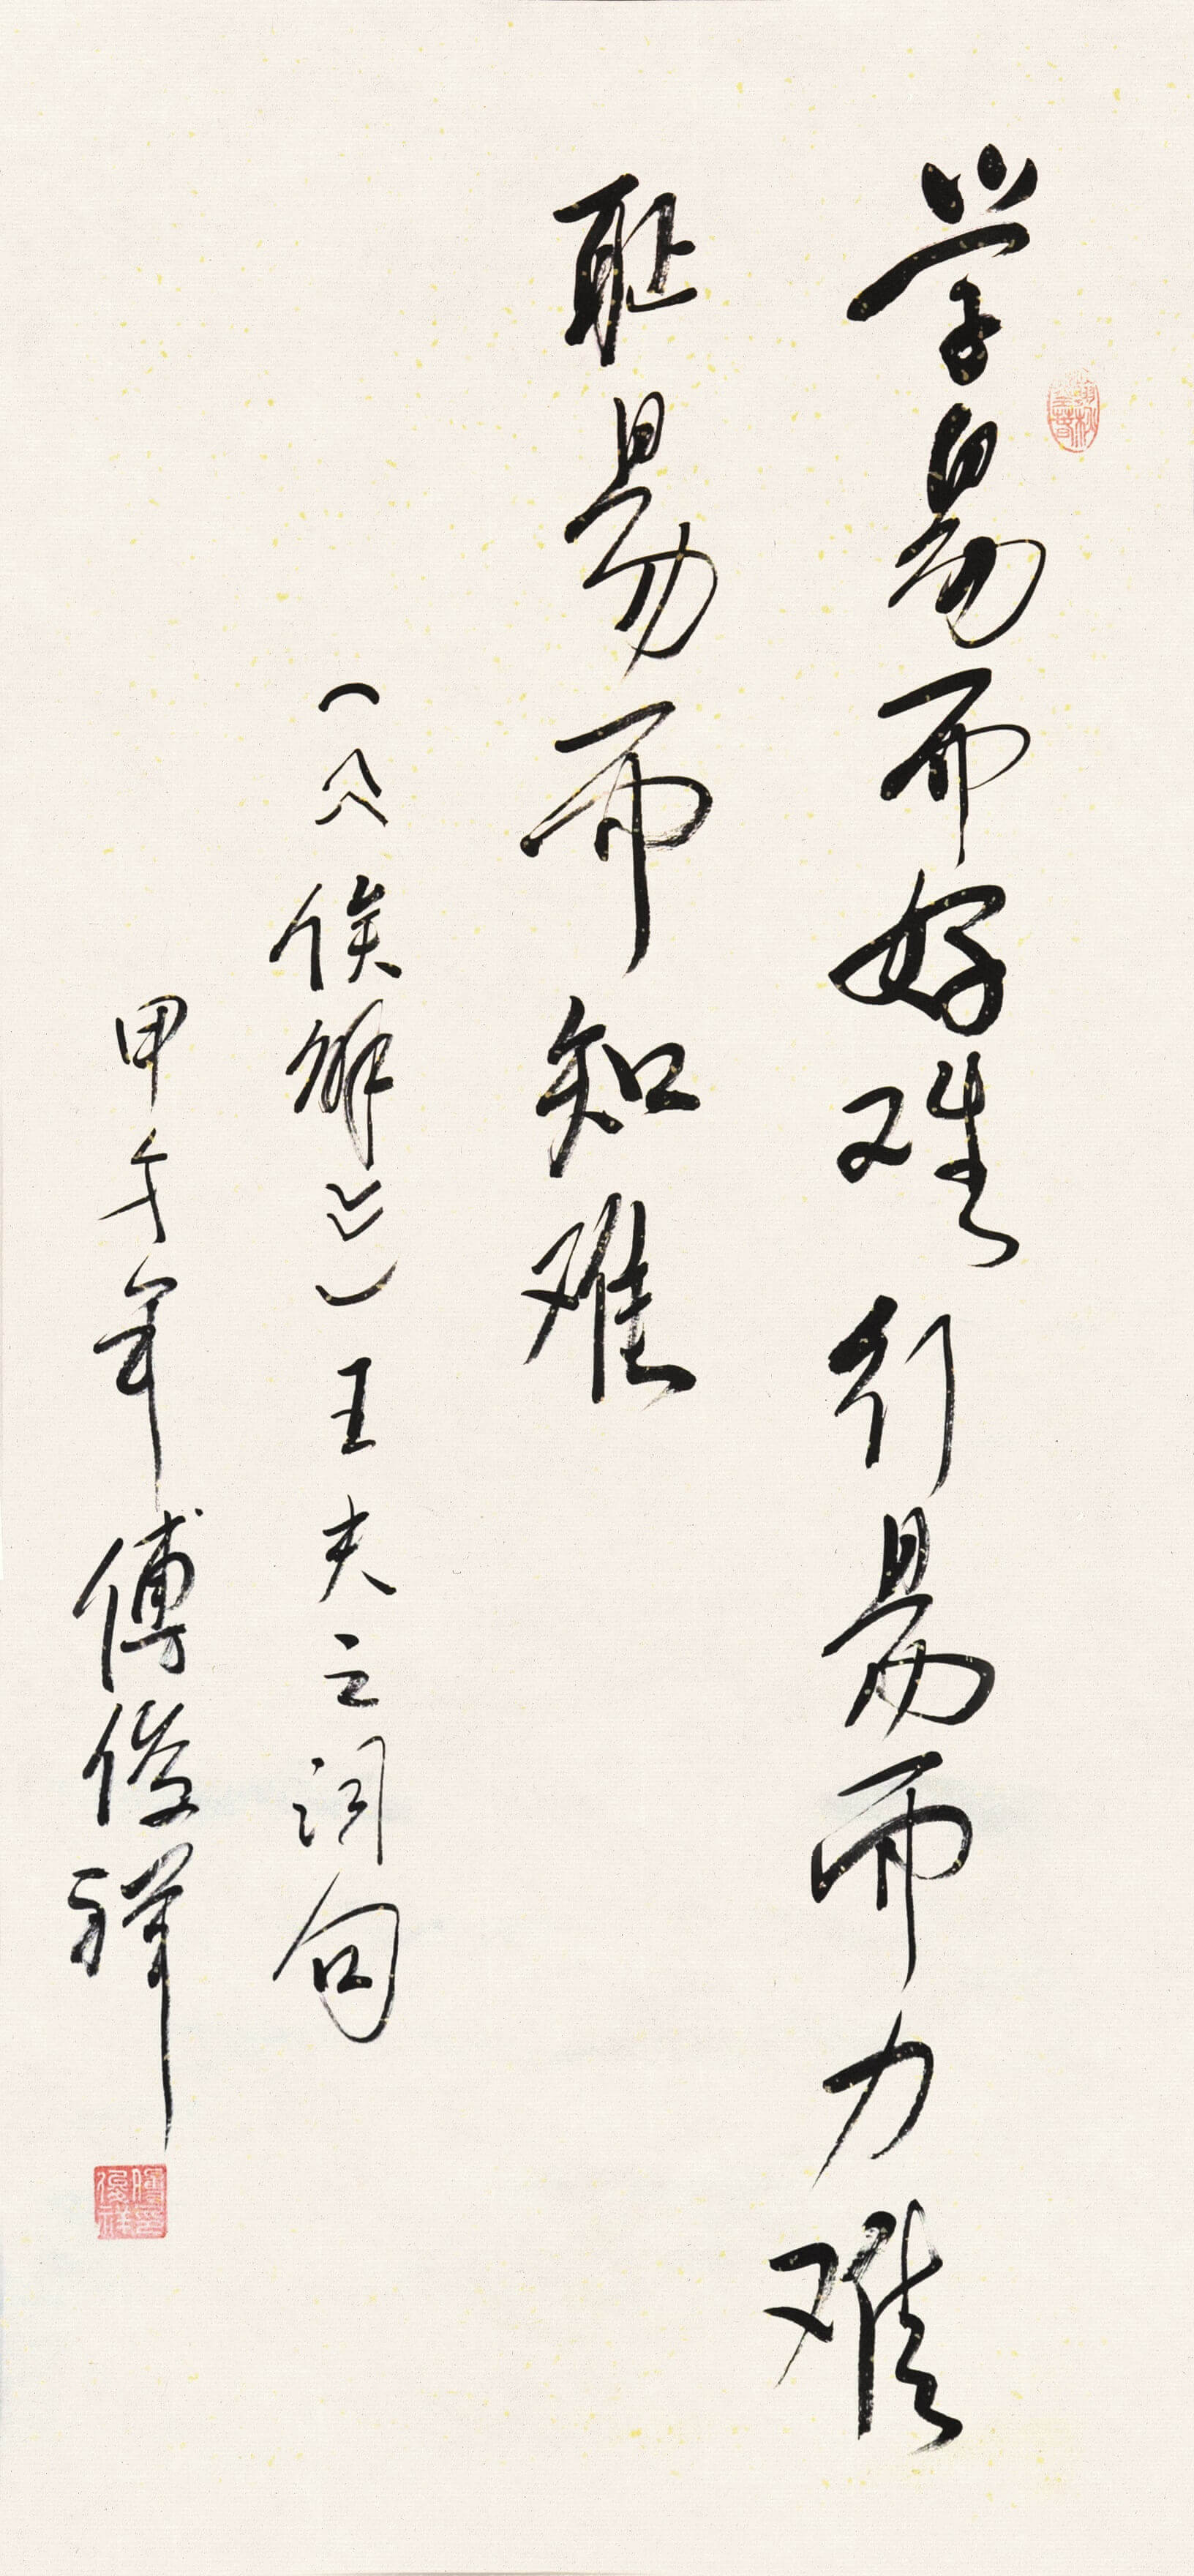 学易而好难行易而力难
耻易而知难
(《俟解》)王夫之词句
甲午年傅俊祥